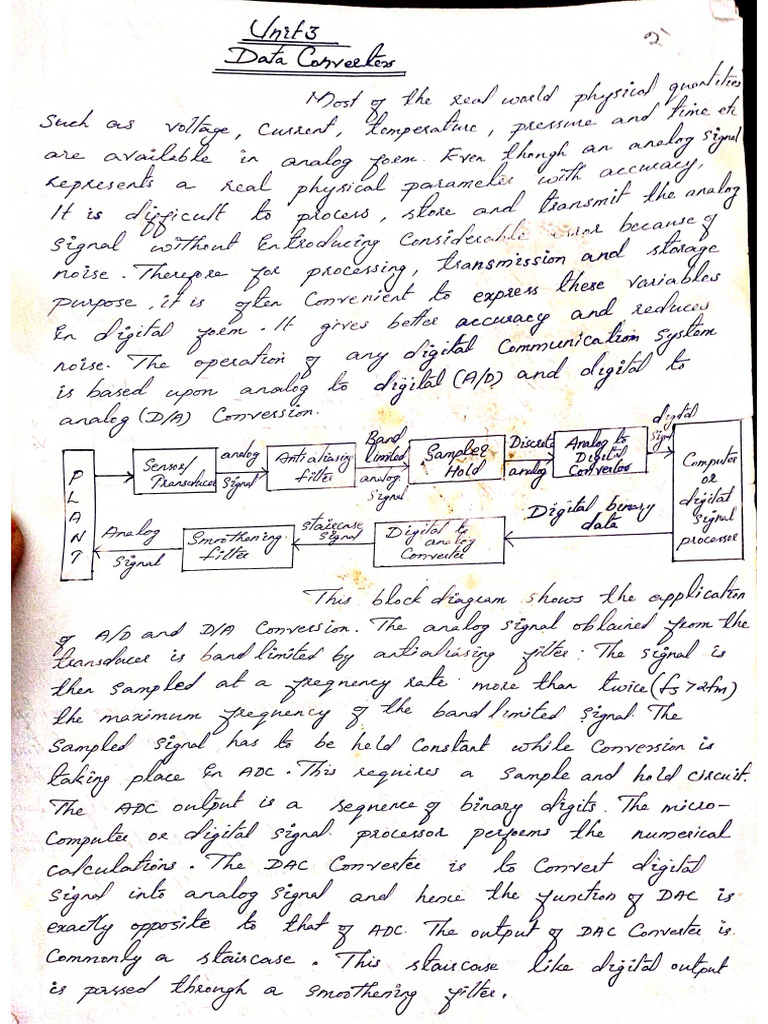 Unit 3
2
Data Converters
Most of the real world physical quantities
Such as voltage, current, temperature, pressure and time etc
are available in analog form. Even though an analog signal
represents a real physical parameter with accuracy,
It is difficult to process, store and transmit the analog
signal without Introducing Considerable error because of
noise. Therefore for processing, transmission and storage
purpose, it is often Convenient to express these variables
In digital form. It gives better accuracy and reduces
noise. The operation of any digital Communication System
is based upon analog to digital (A/D) and digital to
analog (D/A) Conversion.
PLANT
Sensor/
Transducer
analog
signal
Antialiasing
filter
Band
limited
analog
signal
Sample &
Hold
Discrete
analog
Analog to
Digital
Converter
digital
signal
Computer
or
digital
signal
processor
Digital binary
data
Digital to
analog
Converter
staircase
signal
Smoothening
filter
Analog
signal
This block diagram shows the application
of A/D and D/A Conversion. The analog signal obtained from the
transducer is band limited by antialiasing filter. The signal is
then sampled at a frequency rate more than twice (fs > 2fm)
the maximum frequency of the band limited signal. The
Sampled signal has to be held Constant while Conversion is
taking place In ADC. This requires a sample and hold circuit.
The ADC output is a sequence of binary digits. The micro-
Computer or digital signal processor performs the numerical
calculations. The DAC Converter is to Convert digital
signal into analog signal and hence the function of DAC is
exactly opposite to that of ADC. The output of DAC Converter is
Commonly a staircase. This staircase like digital output
is passed through a smoothening filter.